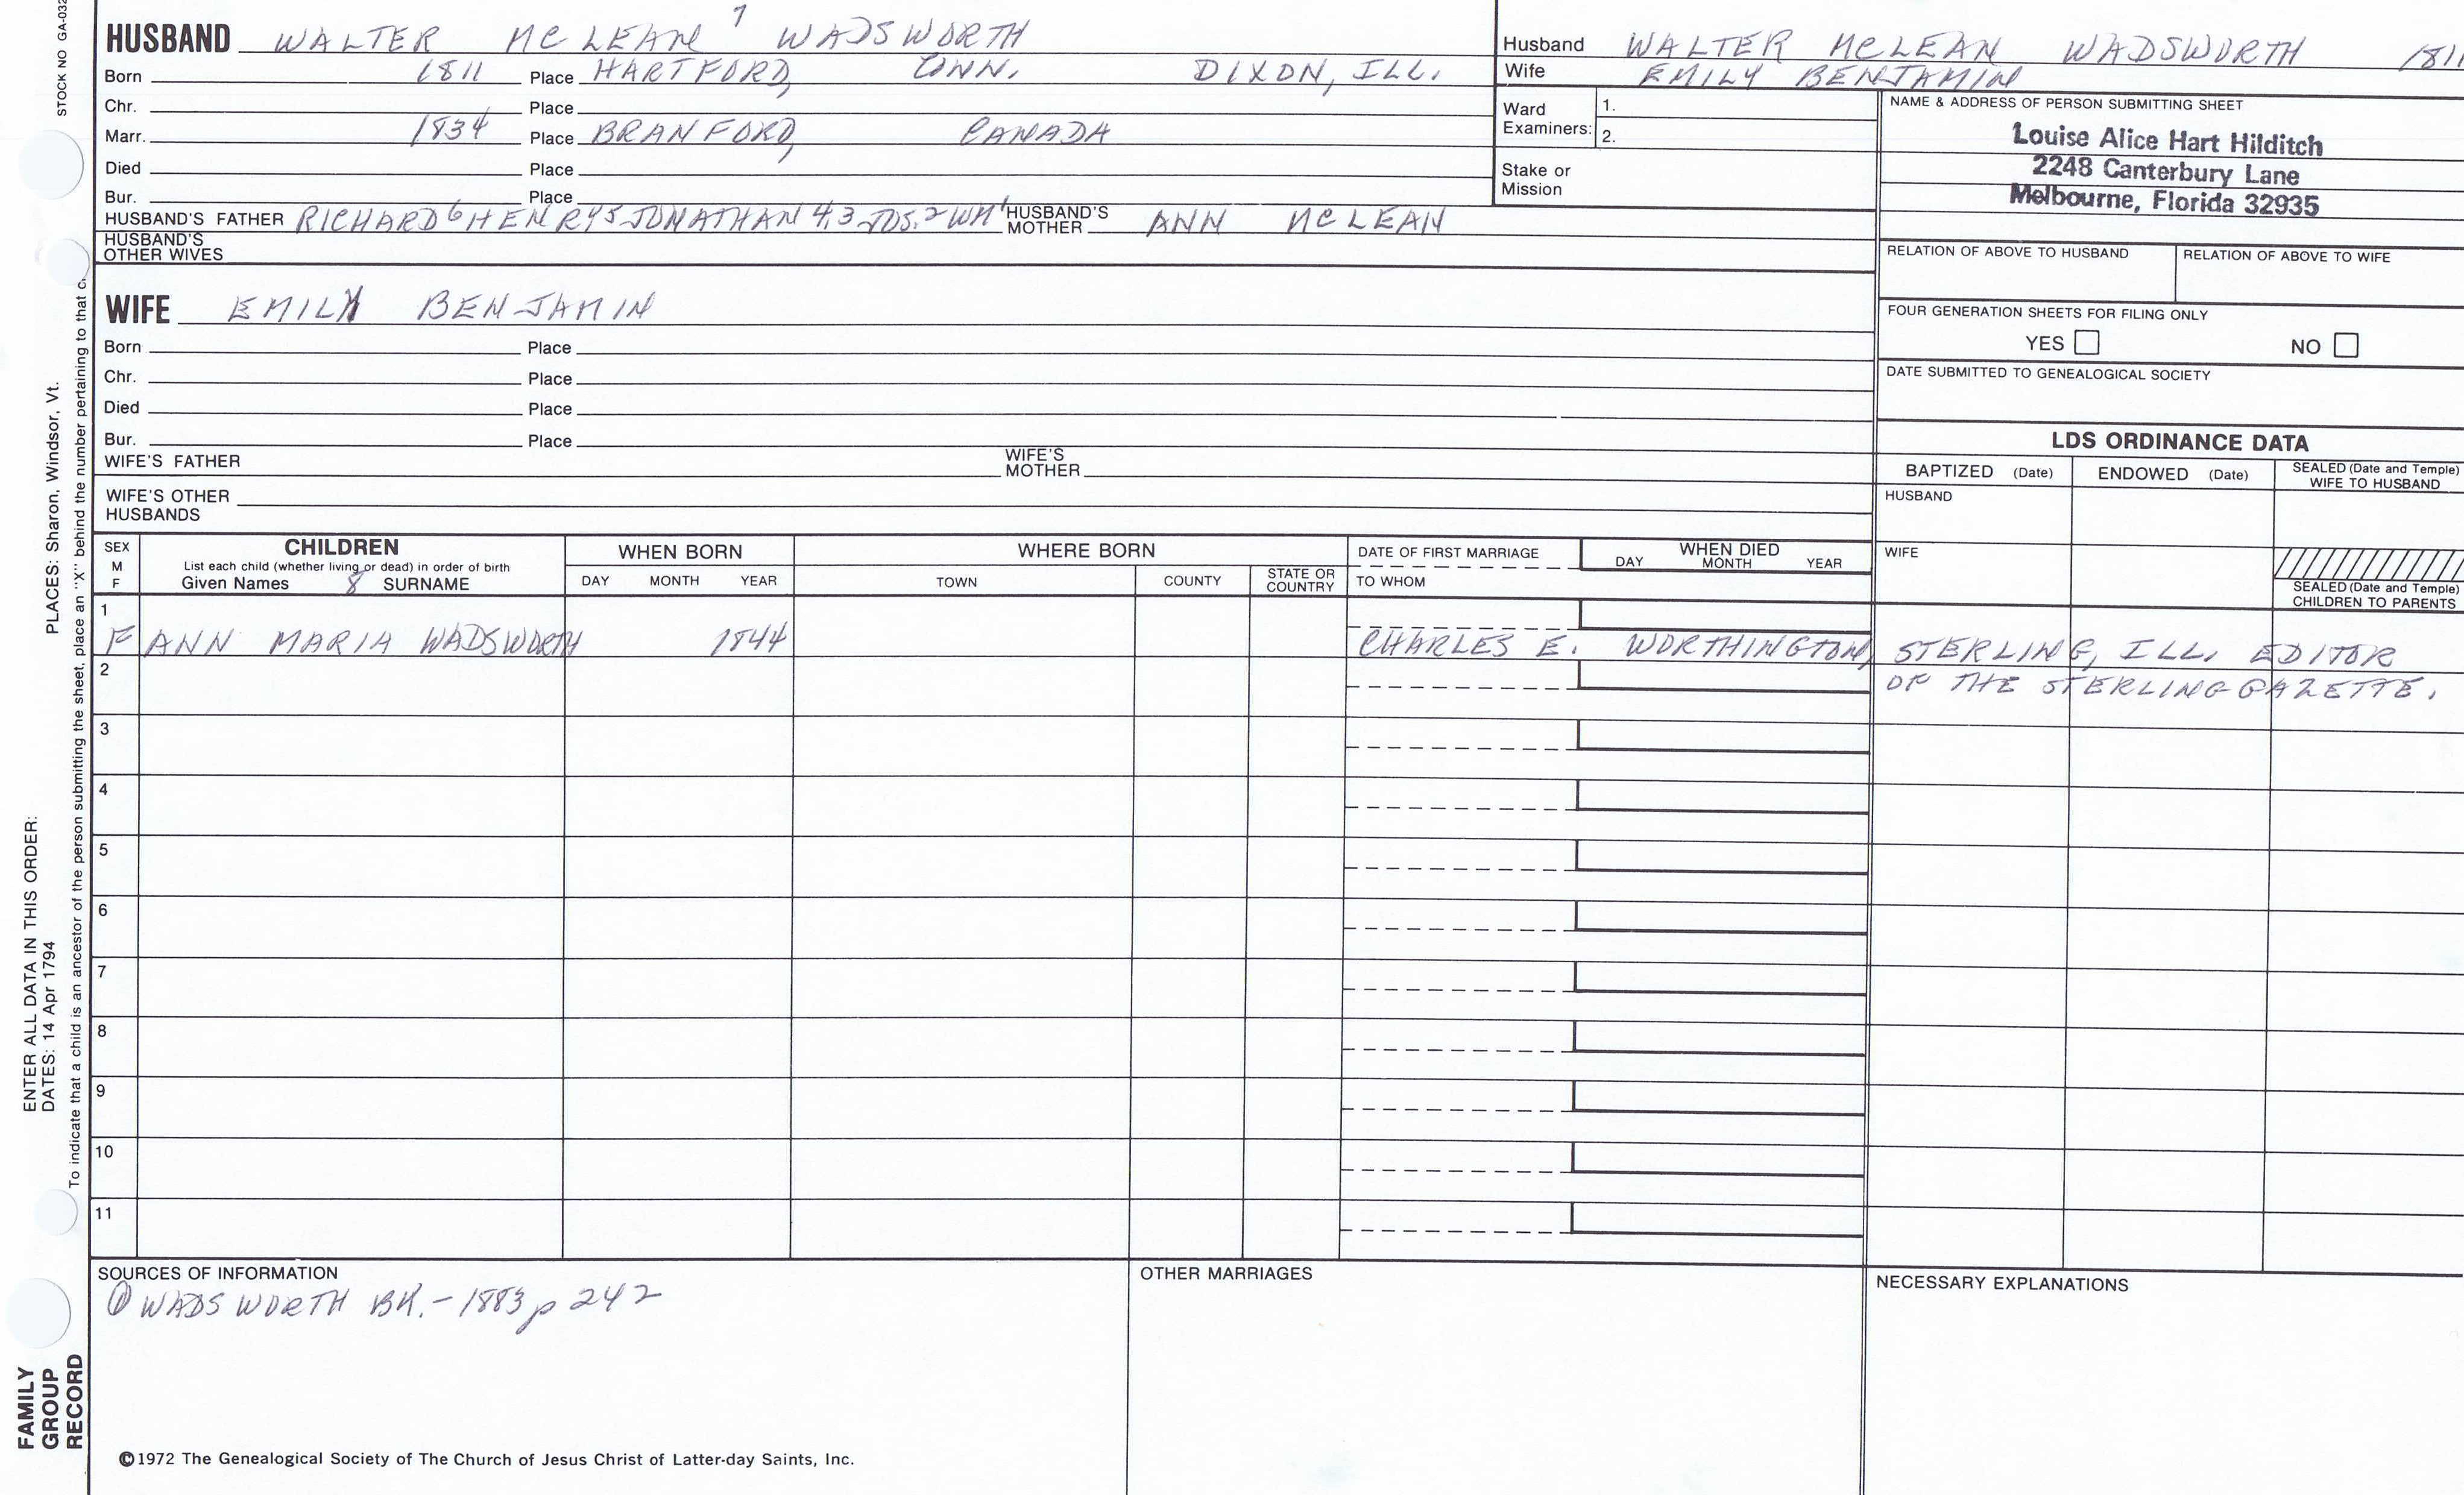 STOCK NO GA-032
HUSBAND WALTER MCLEAN 7 WADSWORTH
Born 1811 Place HARTFORD, CONN. DIXON, ILL.
Chr. Place
Marr. 1834 Place BRANFORD, CANADA
Died Place
Bur. Place
HUSBAND'S FATHER RICHARD 6 HENRY 5 JONATHAN 4,3 JOS. 2 WM 1 HUSBAND'S MOTHER ANN MCLEAN
HUSBAND'S OTHER WIVES
WIFE EMILY BENJAMIN
Born Place
Chr. Place
Died Place
Bur. Place
WIFE'S FATHER WIFE'S MOTHER
WIFE'S OTHER HUSBANDS
Husband WALTER MCLEAN WADSWORTH 1811
Wife EMILY BENJAMIN
Ward Examiners: 1.
2.
Stake or Mission
NAME & ADDRESS OF PERSON SUBMITTING SHEET
Louise Alice Hart Hilditch
2248 Canterbury Lane
Melbourne, Florida 32935
RELATION OF ABOVE TO HUSBAND RELATION OF ABOVE TO WIFE
FOUR GENERATION SHEETS FOR FILING ONLY
YES NO
DATE SUBMITTED TO GENEALOGICAL SOCIETY
LDS ORDINANCE DATA
BAPTIZED (Date) ENDOWED (Date) SEALED (Date and Temple) WIFE TO HUSBAND
HUSBAND
WIFE
SEALED (Date and Temple) CHILDREN TO PARENTS
SEX M F
CHILDREN
List each child (whether living or dead) in order of birth
Given Names 8 SURNAME
WHEN BORN
DAY MONTH YEAR
WHERE BORN
TOWN COUNTY STATE OR COUNTRY
DATE OF FIRST MARRIAGE
TO WHOM
WHEN DIED
DAY MONTH YEAR
1
F ANN MARIA WADSWORTH 1844 CHARLES E. WORTHINGTON, STERLING, ILL. EDITOR
OF THE STERLING GAZETTE.
2
3
4
5
6
7
8
9
10
11
SOURCES OF INFORMATION
① WADSWORTH BK. - 1883 p 242
OTHER MARRIAGES
NECESSARY EXPLANATIONS
©1972 The Genealogical Society of The Church of Jesus Christ of Latter-day Saints, Inc.
FAMILY
GROUP
RECORD
ENTER ALL DATA IN THIS ORDER:
DATES: 14 Apr 1794
PLACES: Sharon, Windsor, Vt.
To indicate that a child is an ancestor of the person submitting the sheet, place an "X" behind the number pertaining to that c